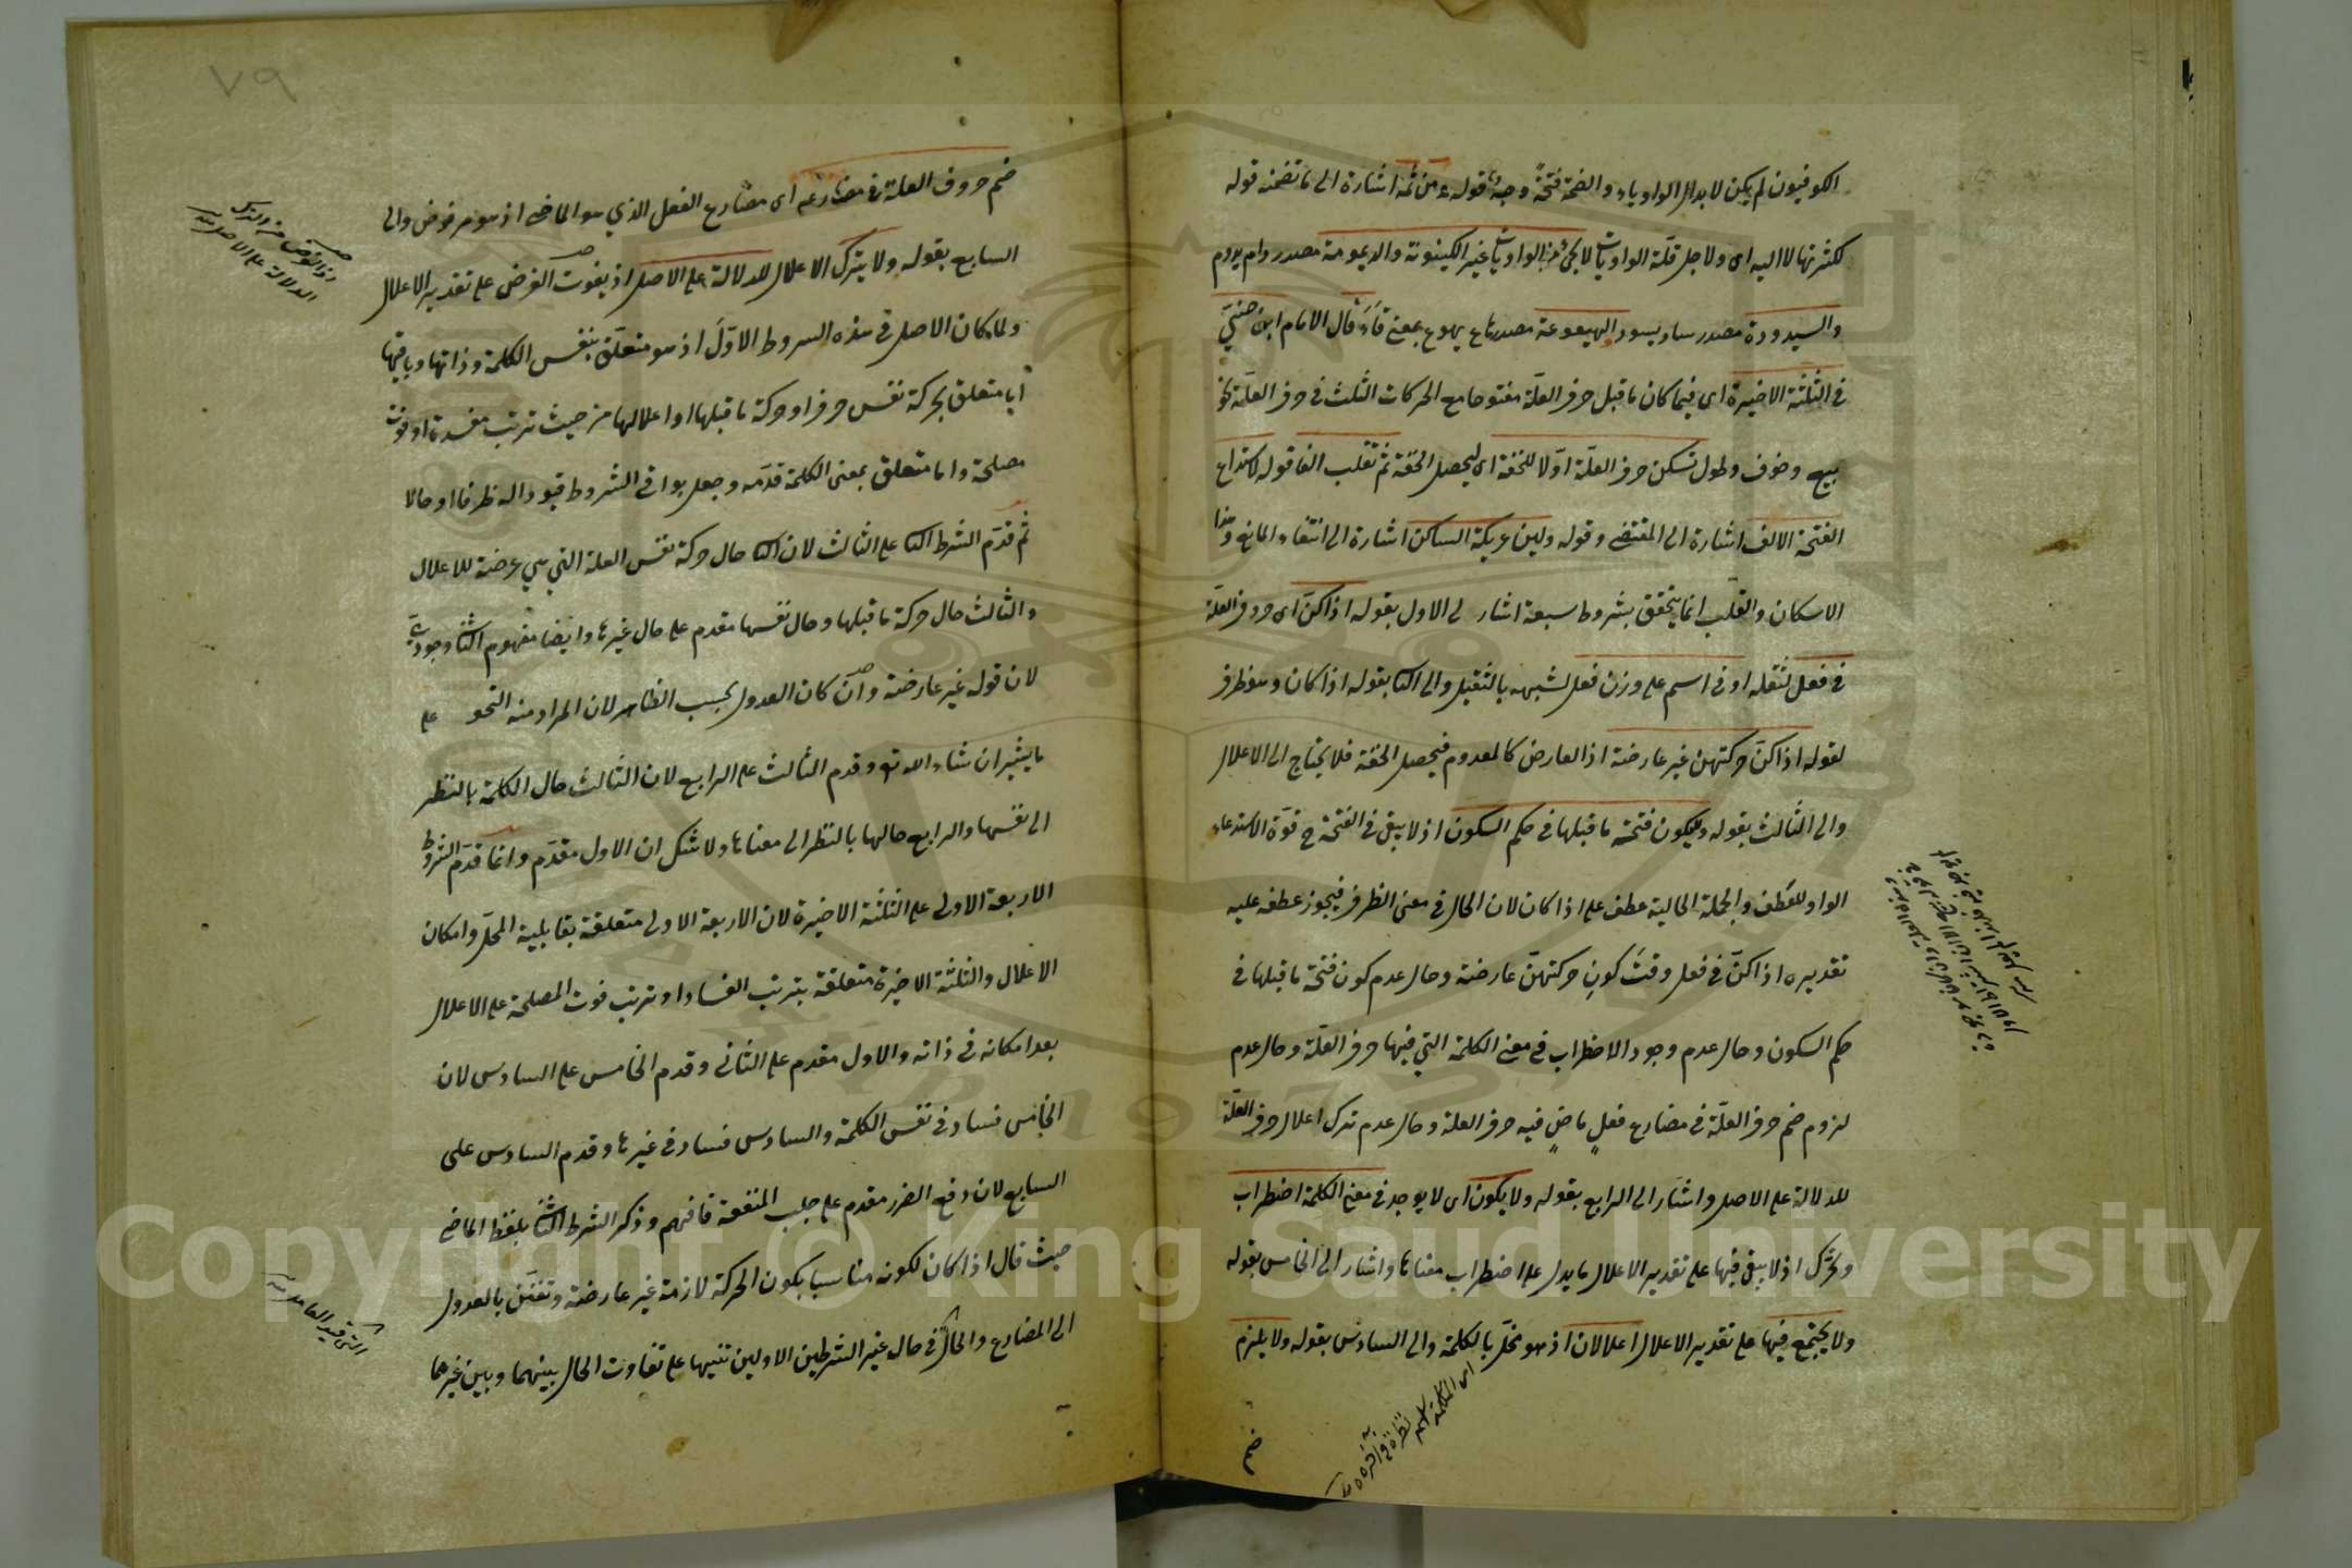 الكوفيون لم يكن لابدال الواو ياء والضمة فتحة وجه قوله ومن ثمة اشارة الى ما تضمنه قوله
لكثرتها لا اليه اى ولاجل قلة الواويات لا يجئ من الواويات غير الكينونة والديمومة مصدر دام يدوم
والسيدودة مصدر ساد يسود والهيعوعة مصدر هاع يهوع بمعنى قاء قال الامام ابن جنى
فى الثلثة الاخيرة اى فيما كان ما قبل حرف العلة مفتوحا مع الحركات الثلث فى حرف العلة نحو
بيع وخوف وطول تسكن حرف العلة اولا للخفة اى ليحصل الخفة ثم تقلب الفا قوله لاستدعاء
الفتحة الالف اشارة الى المقتضى وقوله ولين عريكة الساكن اشارة الى انتفاء المانع وهذا
الاسكان والقلب انما يتحقق بشروط سبعة اشار الى الاول بقوله اذا كن اى حروف العلة
فى فعل لثقله او فى اسم على وزن فعل لشبهه بالثقيل والى الثا بقوله اذا كان وهو ظرف
لقوله اذا كن حركتهن غير عارضة اذ العارض كالمعدوم فيحصل الخفة فلا يحتاج الى الاعلال
والى الثالث بقوله ولا يكون فتحة ما قبلها فى حكم السكون اذ لا يبقى فى الفتحة ح قوة الاستدعاء
الواو للعطف والجملة الحالية عطف على اذا كان لان الحال فى معنى الظرف فيجوز عطفه عليه
تقديره اذا كن فى فعل وقت كون حركتهن عارضة وحال عدم كون فتحة ما قبلها فى
حكم السكون وحال عدم وجود الاضطراب فى معنى الكلمة التى فيها حرف العلة وحال عدم
لزوم ضم حرف العلة فى مضارع فعل ماض فيه حرف العلة وحال عدم ترك اعلال حرف العلة
للدلالة على الاصل واشار الى الرابع بقوله ولا يكون اى لا يوجد فى معنى الكلمة اضطراب
وتحرك اذ لا يبقى فيها على تقدير الاعلال ما يدل على اضطراب معناها واشار الى الخامس بقوله
ولا يجتمع فيها على تقدير الاعلال اعلالان اذ هو مخل بالكلمة والى السادس بقوله ولا يلزم
ضم
٧٩
ضم حروف العلة فى مضارعه اى مضارع الفعل الذي هو الماضى اذ هو مرفوض والى
السابع بقوله ولا يترك الاعلال للدلالة على الاصل اذ يفوت الغرض على تقدير الاعلال
ولما كان الاصل فى هذه الشروط الاول اذ هو متعلق بنفس الكلمة وذاتها وباقيها
اما متعلق بحركة نفس حرف او حركة ما قبلها او اعلالها من حيث ترتب مفسدة او فوت
مصلحة واما متعلق بمعنى الكلمة قدمه وجعل بواقى الشروط قيودا له ظرفا او حالا
ثم قدم الشرط الثا على الثالث لان الثا حال حركة نفس العلة التي هي عرضة للاعلال
والثالث حال حركة ما قبلها وحال نفسها مقدم على حال غيرها وايضا مفهوم الثا وجودي
لان قوله غير عارضة وان كان العدول بحسب الظاهر لان المراد منه التحو على
ما يشير ان شاء الله تع وقدم الثالث على الرابع لان الثالث حال الكلمة بالنظر
الى نفسها والرابع حالها بالنظر الى معناها ولا شك ان الاول مقدم وانما قدم الشروط
الاربعة الاولى على الثلثة الاخيرة لان الاربعة الاولى متعلقة بقابلية المحل وامكان
الاعلال والثلثة الاخيرة متعلقة بترتب الفساد او ترتب فوت المصلحة على الاعلال
بعد امكانه فى ذاته والاول مقدم على الثانى وقدم الخامس على السادس لان
الخامس فساد فى نفس الكلمة والسادس فساد فى غيرها وقدم السادس على
السابع لان دفع الضرر مقدم على جلب المنفعة فافهم وذكر الشرط الثا بلفظ الماضى
حيث قال اذا كان لكونه مناسبا بكون الحركة لازمة غير عارضة وتفنن بالعدول
الى المضارع والحال فى حال غير الشرطين الاولين تنبيها على تفاوت الحال بينهما وبين غيرهما
Copyright © King Saud University